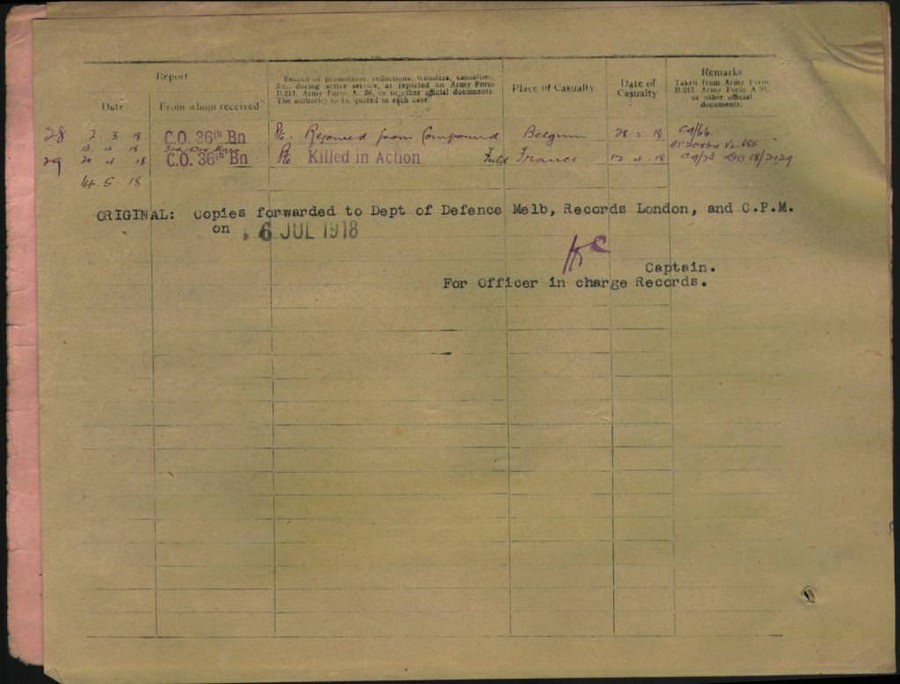 Report
Record of promotions, reductions, transfers, casualties,
&c., during active service, as reported on Army Form
B.213, Army Form A. 36, or in other official documents.
The authority to be quoted in each case
Place of Casualty
Date of
Casualty
Remarks
Taken from Army Form
B.213, Army Form A. 36,
or other official
documents.
Date
From whom received
28 2. 3. 18 C.O. 36th Bn Pte. Rejoined from Compound Belgium 28 2 18
29 20 4 18 C.O. 36th Bn Pte Killed in Action Field France 12 4 18
14. 5. 18
ORIGINAL: Copies forwarded to Dept of Defence Melb, Records London, and C.P.M.
on 6 JUL 1918
Captain.
For Officer in charge Records.